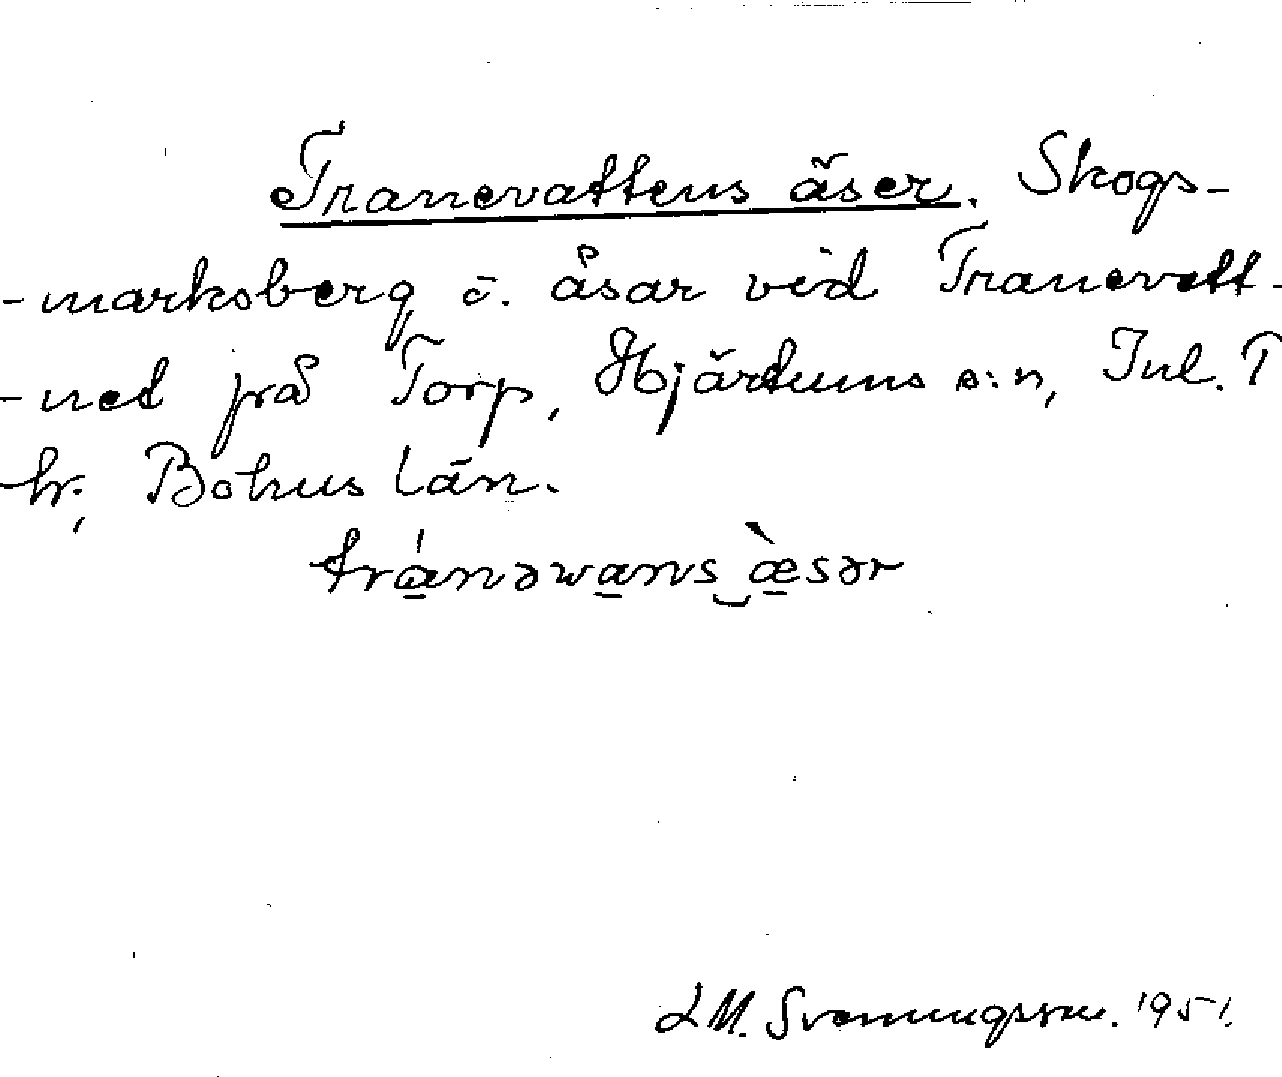 Tranevattens äser. Skogs-
-marksberg o. åsar vid Tranevatt-
-net på Torp, Hjärtums s:n, Inl. T
hr, Bohus län.
tránəwans‿æ̀sər
LM. Svenungsson. 1951.